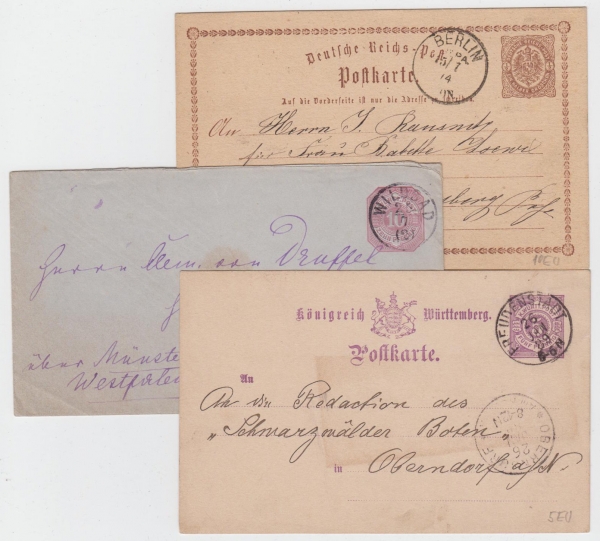 Deutsche Reichs-Po
Postkarte.
BERLIN
15/7
74
Auf die Vorderseite ist nur die Adresse zu
An Herrn J.
für Frau Babette Loewi
berg
10EU
WILDBAD
Herrn Clem. von Druffel
über Münster
Westfalen
Königreich Württemberg.
Postkarte.
FREUDENSTADT
An
An die Redaction des
„Schwarzwälder Boten
in Oberndorf a/N.
OBERNDORF
5EU